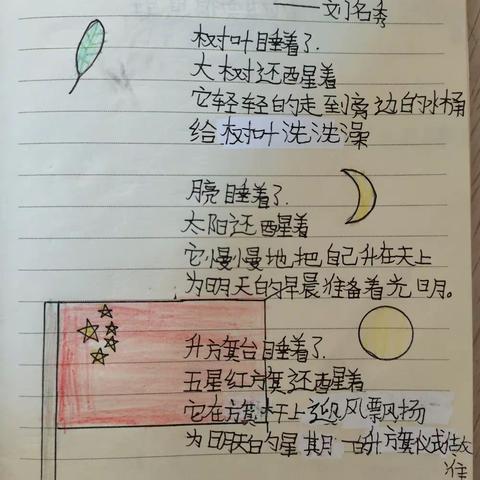 ——刘名秀
树叶睡着了.
大树还醒着
它轻轻的走到旁边的水桶
给树叶洗洗澡
月亮睡着了.
太阳还醒着
它慢慢地把自己升在天上
为明天的早晨准备着光明。
升旗台睡着了.
五星红旗还醒着
它在旗杆上迎风飘扬
为明天的星期一的升旗仪式做
准